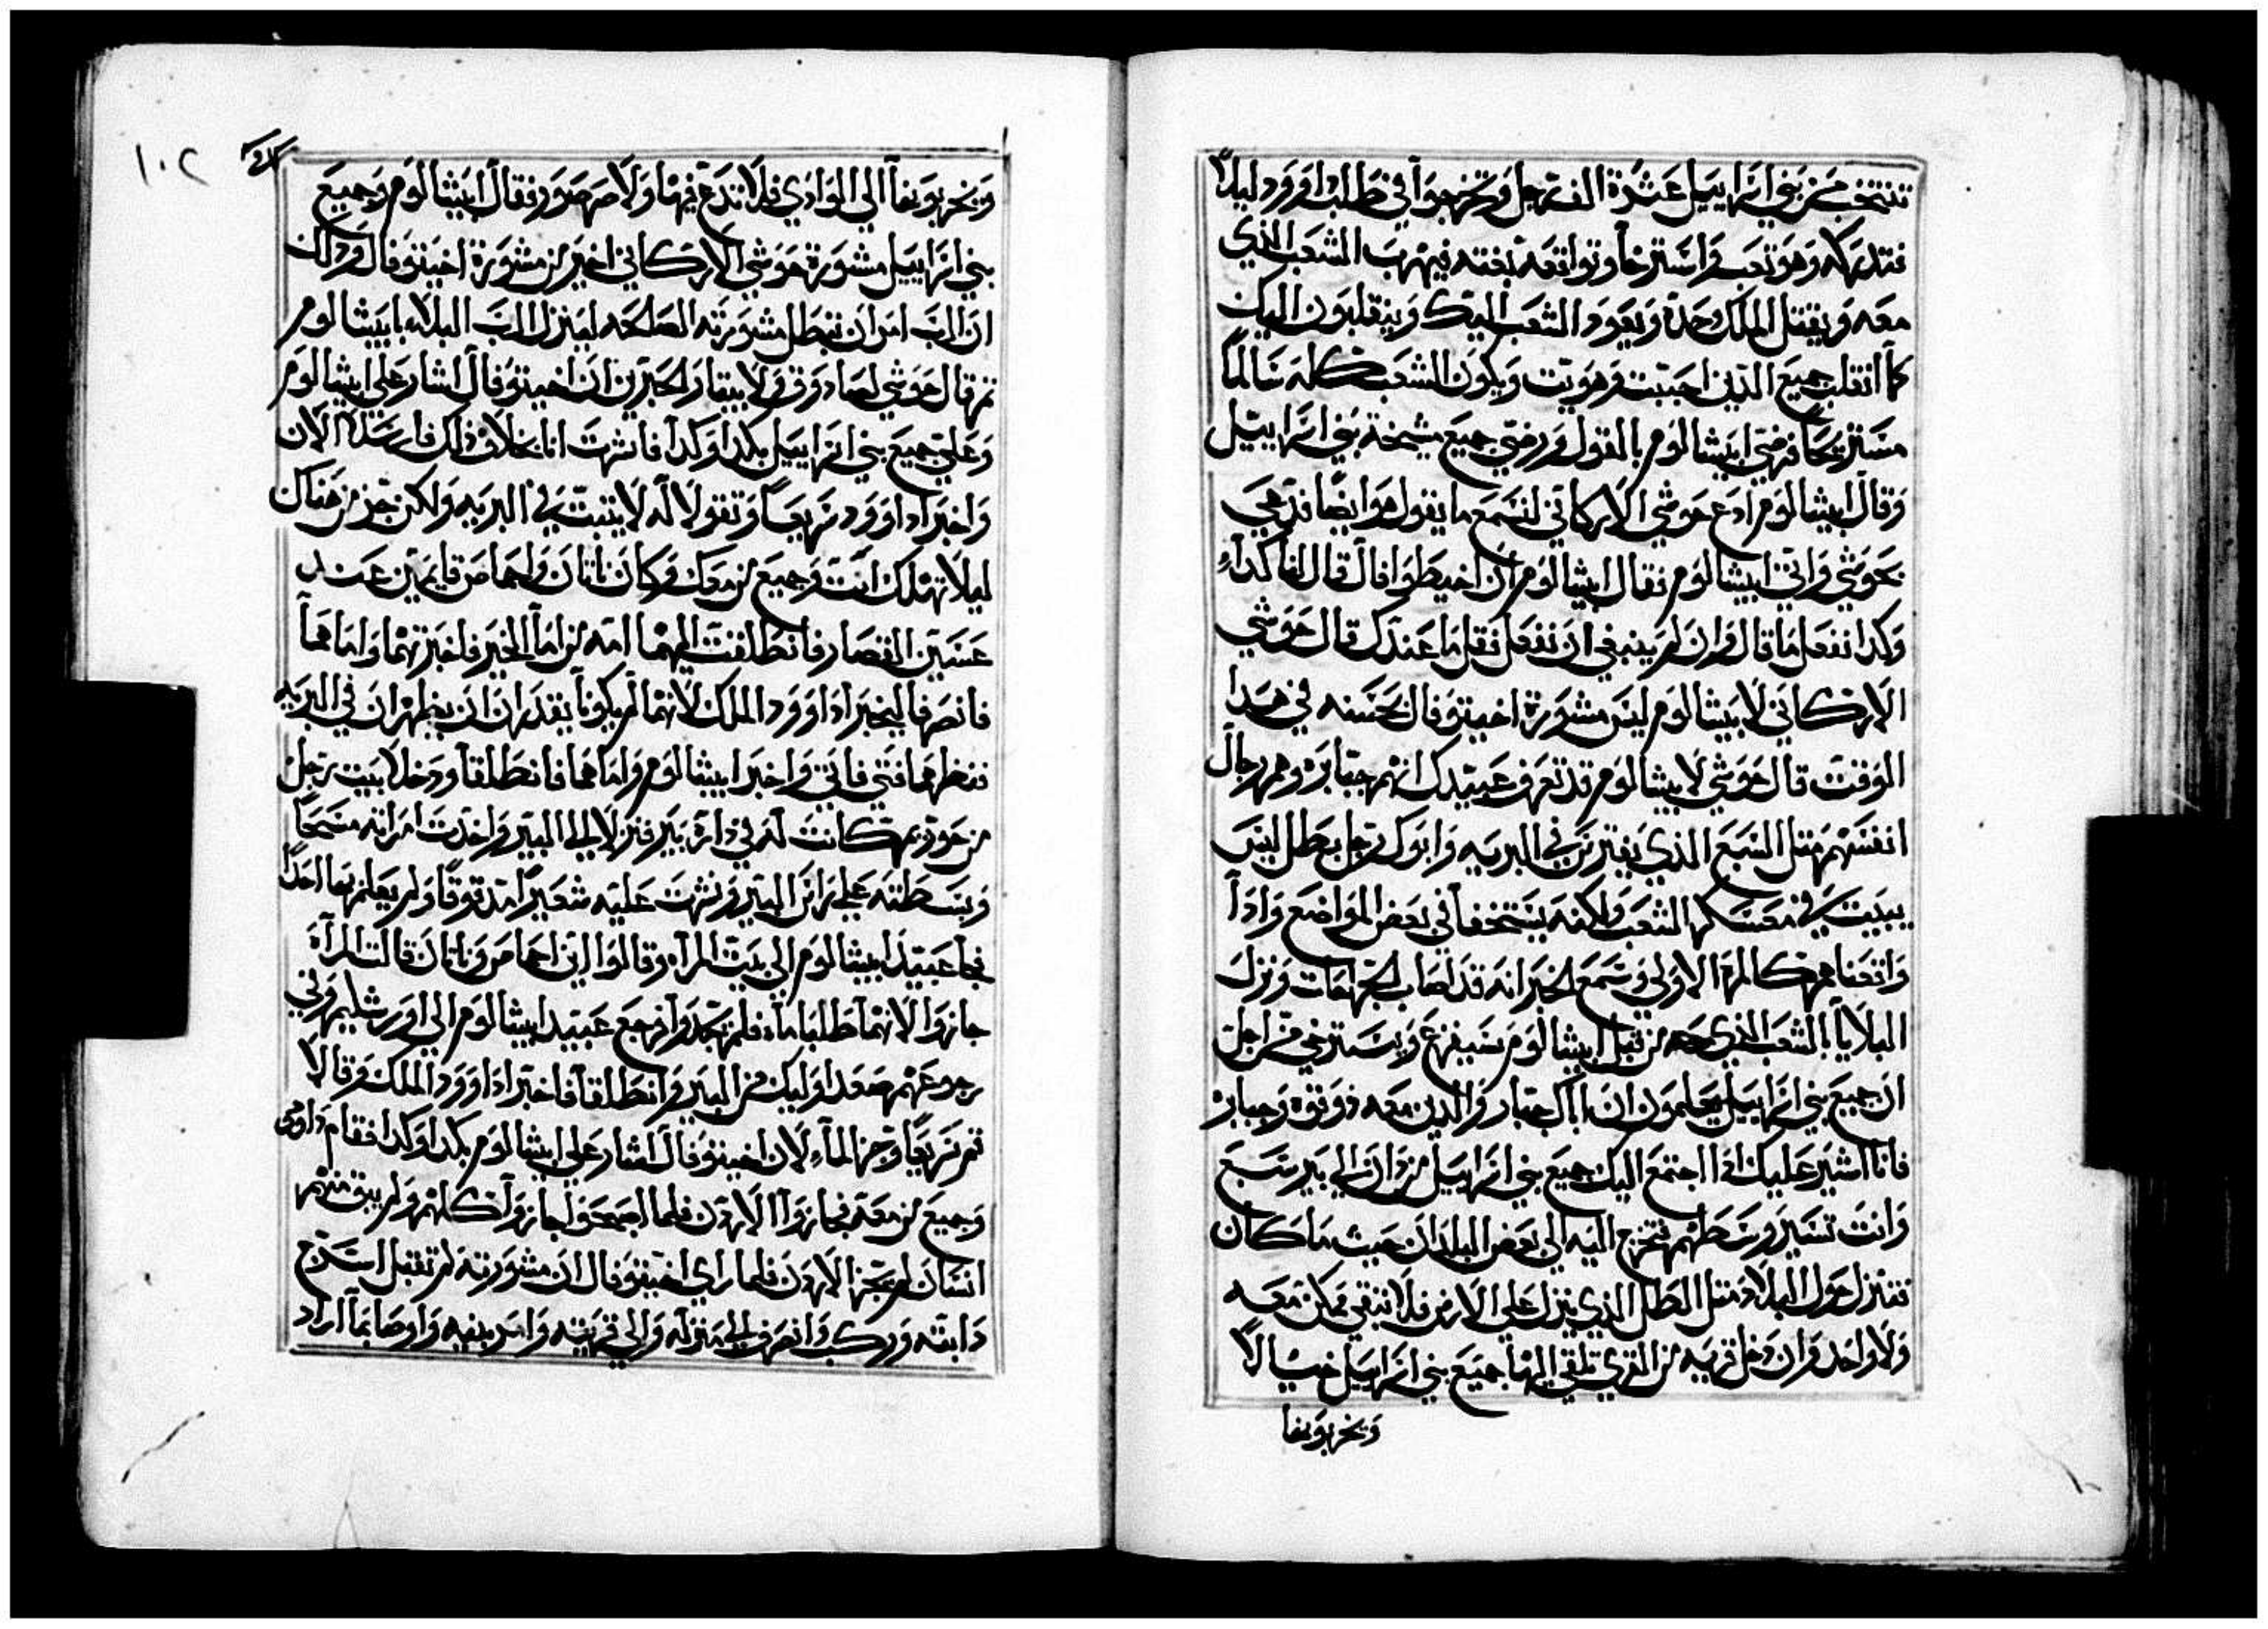 تنتخب من بني اسراييل عشرة الف رجل وتخرجوا في طلب داوود ليلاً
فتدركه وهو تعب واسترخا وتواقعه بغته فيهرب الشعب الذي
معه ويقتل الملك وحده ويعود الشعب اليك وينقلبون اليك
كما انقلب جميع الذين احببت وهويت ويكون الشعب كله سالماً
مستريحاً فرضي ابيشالوم بالقول ورضي جميع مشيخة بني اسراييل
وقال ابيشالوم ادع حوشي الاركاني لنسمع ما يقول هو ايضاً فدعي
بحوشي واتي ابيشالوم فقال ابيشالوم ان اخيطوافال قال لنا كداء
وكدا نفعل ما قال وان لم ينبغي ان نفعل فقل ما عندك قال حوشي
الاركاني لابيشالوم ليس مشورة اخيتوفال بحسنه في هدا
الوقت قال حوشي لابيشالوم قد تعرف عبيدك انهم جبابره وهم رجال
انفسهم مثل السبع الذي يفترس في البريه وابوك رجل بطل ليس
يبيت في معسكر الشعب ولكنه يستخفا في بعض المواضع وادا
واقعناهم كالمرة الاولي وسمع الخبر انه قد اصاب الجراحات ونزل
البلايا بالشعب الذي معه من قبل ابيشالوم سيفزع ويسترخي من اجل
ان جميع بني اسراييل يعلمون ان اباك جبار والدين معه دو قوه وجبابره
فانا اشير عليك ادا اجتمع اليك جميع بني اسراييل من دان الي بير سبع
وانت تسير وسطهم فتخرج اليه الي بعض البلدان حيث ما كان
فتنزل حول البلاد مثل الطل الذي ينزل علي الارض فلا تبقي ممكن معه
ولا واحد وان دخل قريه من القري تلقي اليها جميع بني اسراييل حبالاً
ويخربونها
١٠٢
ويخربونها الي الوادي فلا تدع فيها ولا صرصور فقال ابيشالوم وجميع
بني اسراييل مشورة حوشي الاركاني اخير من مشورة اخيتوفال ودلك
ان الرب امر ان تبطل مشورته الصالحه لينزل الرب البلاء بابيشالوم
ثم قال حوشي لصادوق ولابيتار الحبرين ان اخيتوفال اشار علي ابيشالوم
وعلي جميع بني اسراييل بكدا وكدا فاشرت انا بخلاف ذلك فارسلا الان
واخبرا داوود سريعاً وتقولا له لا يتبت في البريه ولكن جز من هناك
ليلا تهلك انت وجميع من معك وكان ناتان واحيماص قايمين عند
عسين القصار فانطلقت اليهما امه من اما الخبر فاخبرتهما واما هما
فانصرفا ليخبرا داوود الملك لانهما لم يكونا يقدران ان يظهران في البريه
فنظرهما فتي فاتي واخبر ابيشالوم واما هما فانطلقا ودخلا بيت رجل
من حودريم كانت له في داره بير فنزلا الي البير واخدت امراته مسحاً
وبسطته علي راس البير ونشرت عليه شعيراً مدقوقاً ولم يعلم بهما احداً
فجا عبيد ابيشالوم الي بيت المرآه وقالوا اين احيماص وناتان قالت المرآة
جازوا لانهما طلبا ماء فلم تجدوا فرجع عبيد ابيشالوم الي اورشليم وفي
رجوعهم صعدا اوليك من البير وانطلقا فاخبرا داوود الملك وقالا
قم سريعاً وجز الماء لان اخيتوفال اشار علي ابيشالوم بكدا وكدا فقام داوود
وجميع من معه فجازوا الاردن فلما اصبحوا جازوا كلهم ولم يبق منهم
انسان لم يجز الاردن فلما راي اخيتوفال ان مشورته لم تقبل اسرج
دابته وركب وانصرف الي منزله والي قريته وامر بنيه واوصا بما اراد